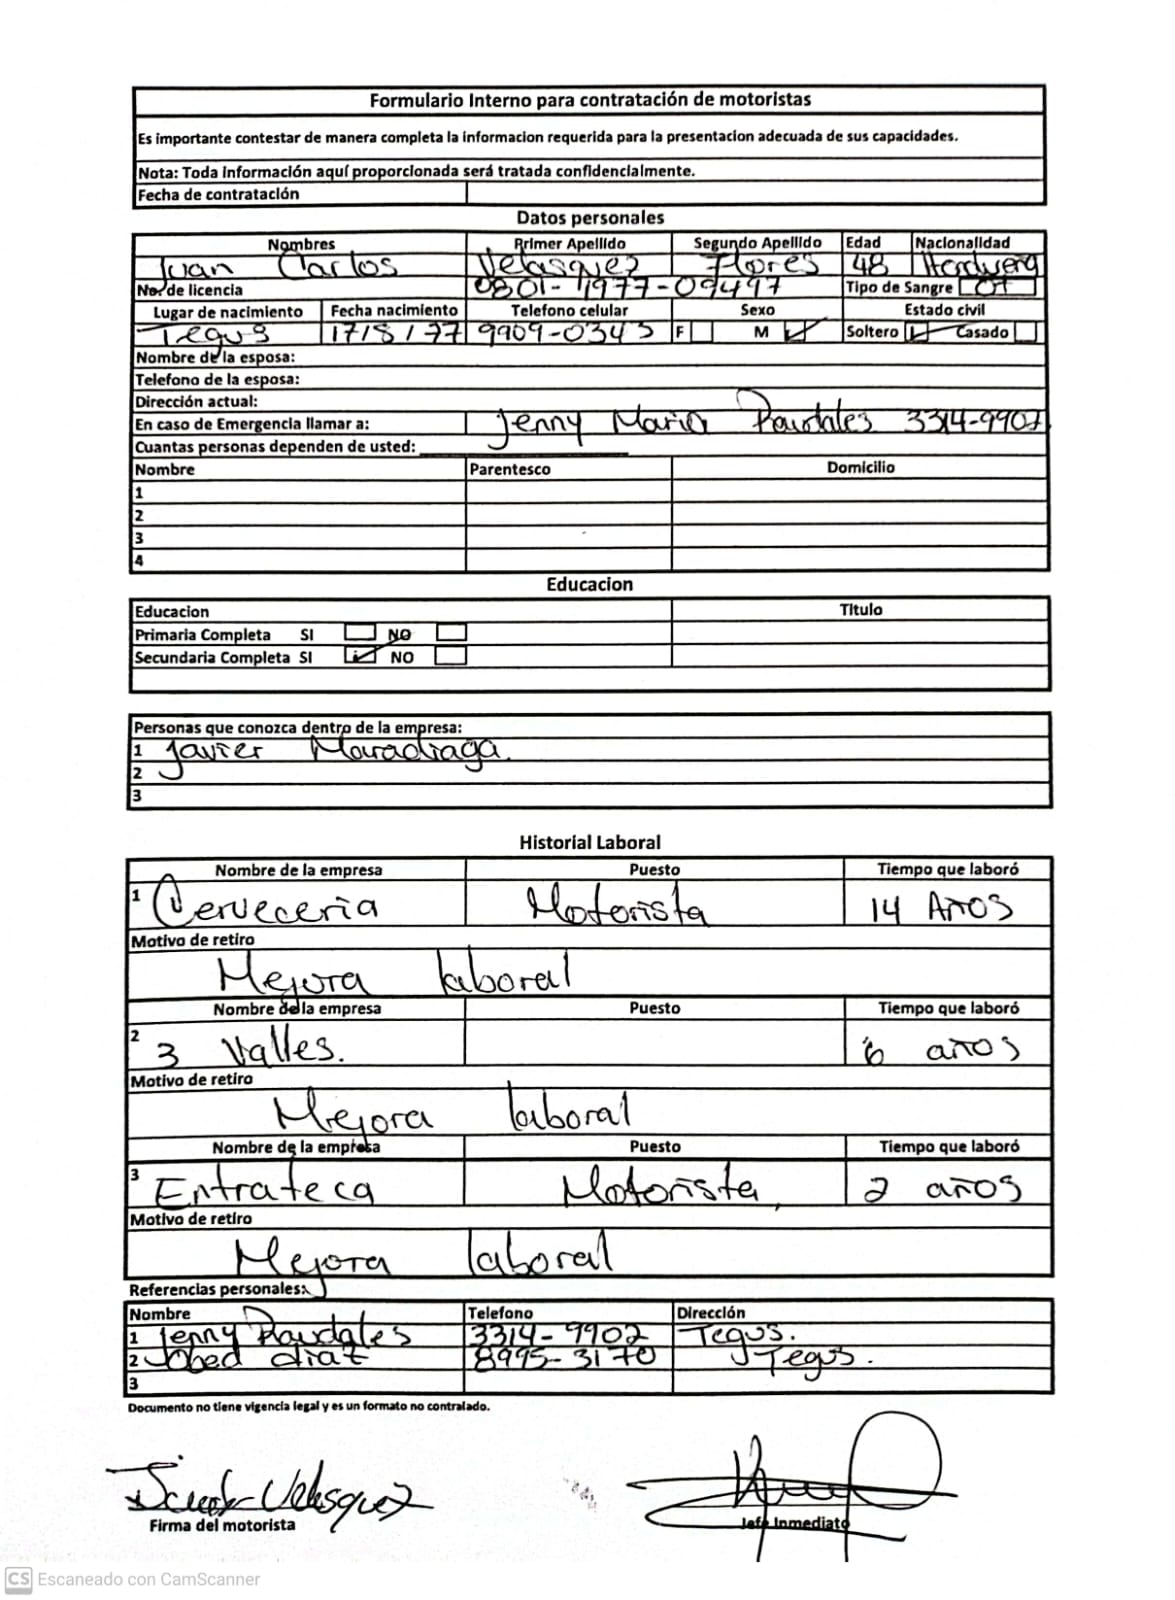 Formulario Interno para contratación de motoristas
Es importante contestar de manera completa la informacion requerida para la presentacion adecuada de sus capacidades.
Nota: Toda información aquí proporcionada será tratada confidencialmente.
Fecha de contratación
Datos personales
Nombres Primer Apellido Segundo Apellido Edad Nacionalidad
Juan Carlos Velasquez Flores 48
No. de licencia 0801-1977-09497 Tipo de Sangre O+
Lugar de nacimiento Fecha nacimiento Telefono celular Sexo Estado civil
Tegus 17/8/77 9909-0343 F M Soltero Casado
Nombre de la esposa:
Telefono de la esposa:
Dirección actual:
En caso de Emergencia llamar a: Jenny Maria Raudales 3314-9902
Cuantas personas dependen de usted:
Nombre Parentesco Domicilio
1
2
3
4
Educacion
Educacion Titulo
Primaria Completa SI NO
Secundaria Completa SI NO
Personas que conozca dentro de la empresa:
1 Javier Maradiaga.
2
3
Historial Laboral
Nombre de la empresa Puesto Tiempo que laboró
1 Cerveceria Motorista 14 Años
Motivo de retiro
Mejora laboral
Nombre de la empresa Puesto Tiempo que laboró
2 3 Valles. 6 años
Motivo de retiro
Mejora laboral
Nombre de la empresa Puesto Tiempo que laboró
3 Entrateca Motorista 2 años
Motivo de retiro
Mejora laboral
Referencias personales:
Nombre Telefono Dirección
1 Jenny Raudales 3314-9902 Tegus.
2 Jobed diaz 8995-3170 Tegus.
3
Documento no tiene vigencia legal y es un formato no contralado.
Velasquez
Firma del motorista Jefe Inmediato
CS Escaneado con CamScanner